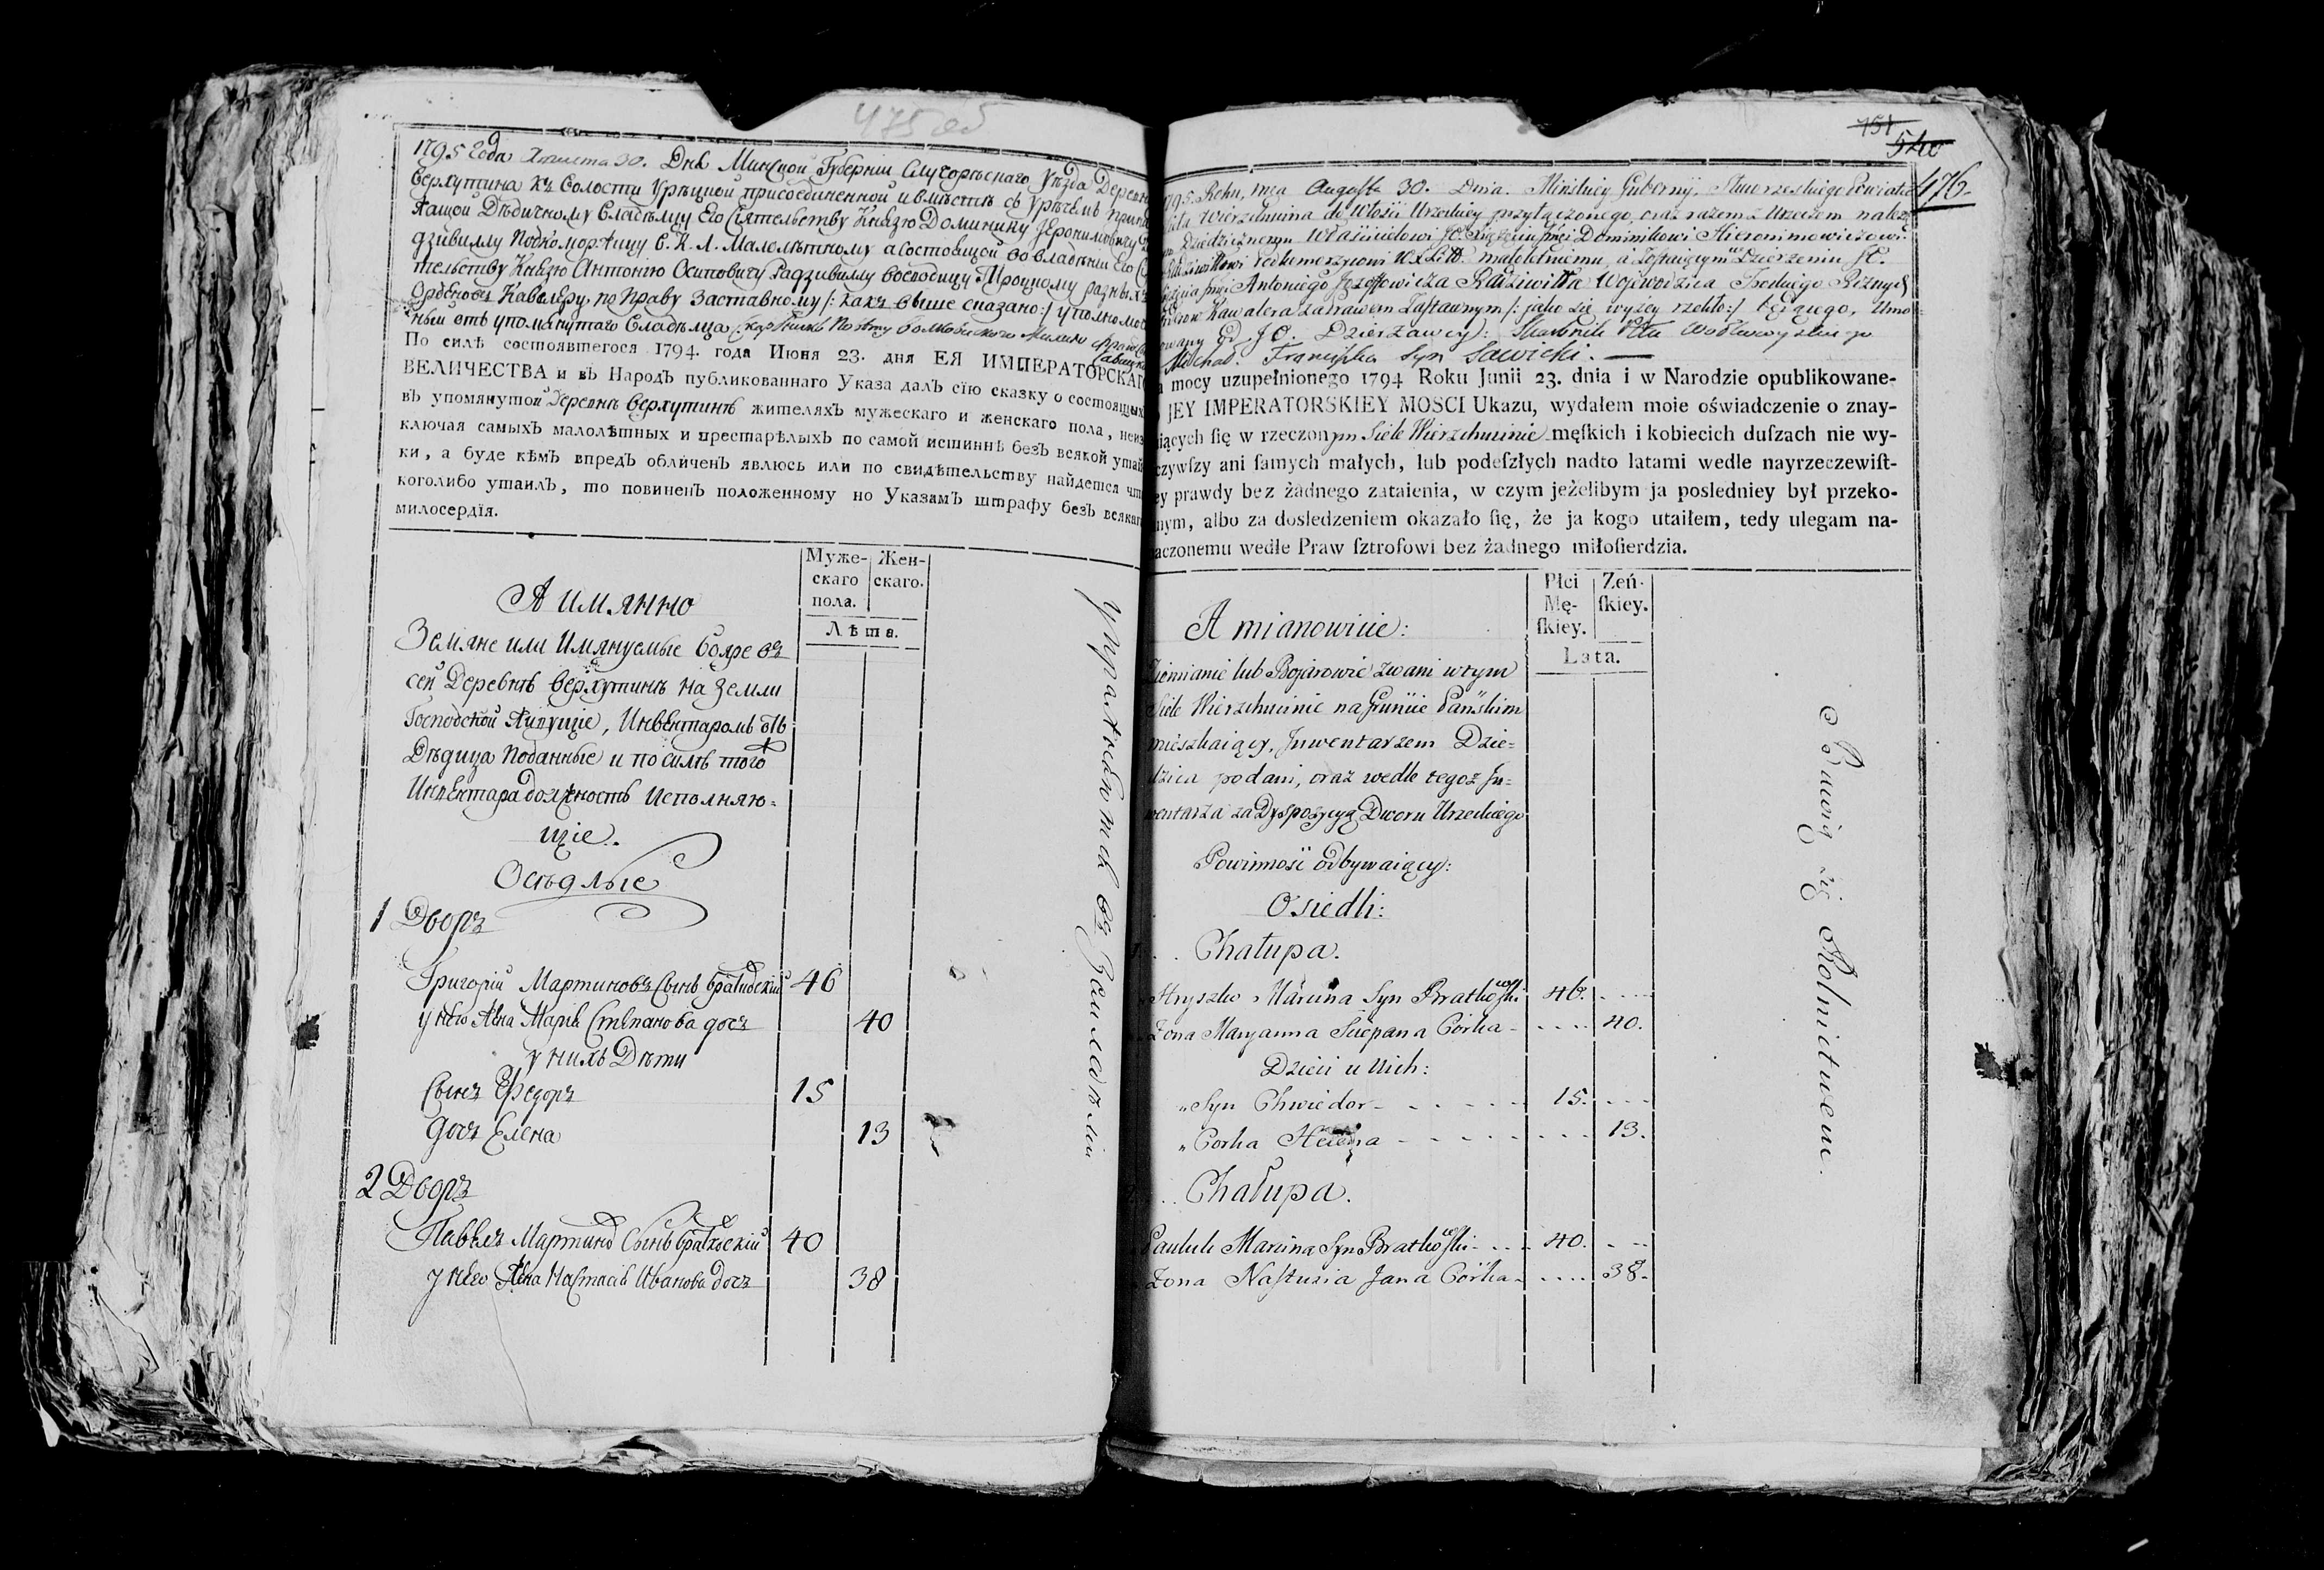 475 об
1795 года Августа 30. Дня Минской Губернии Слуцорѣскаго Уѣзда Деревни
Верхутина къ Волости Урѣцкой присоединенной и вмѣстѣ съ Урѣчемъ
Дѣдичному Владѣлцу Его Сіятельству Князю Доминику Іеронимовичу
дзивиллу Подкоморжицу В. К. Л. Малолѣтному а состоящой во владѣніи Его
тельству Князю Антонію Осиповичу Радзивиллу Воеводицу Троцкому разныхъ
Орденовъ Кавалеру, по праву Заставному /: какъ выше сказано :/ уполномо
ный отъ упомянутаго Владѣлца
По силѣ состоявшегося 1794. года Июня 23. дня ЕЯ ИМПЕРАТОРСКАГО
ВЕЛИЧЕСТВА и вЪ НародЪ публикованнаго Указа далЪ сїю сказку о состоящихъ
вЪ упомянутой Деревнѣ Верхутинѣ жителяхЪ мужескаго и женскаго пола, неис
ключая самыхЪ малолѣтных и престарѣлыхЪ по самой истиннѣ безЪ всякой утай
ки, а буде кѣмЪ впредЪ обличенЪ явлюсь или по свидѣтельству найдется что
коголибо утаилЪ, то повиненЪ положенному по УказамЪ штрафу безЪ всякаго
милосердїя.
Муже- Жен-
скаго скаго.
пола.
Лѣта.
А имянно
Земяне или Имянуемые бояре въ
сей Деревнѣ Верхутинѣ на Земли
Господской Живущіе, Инвентаромъ отъ
Дѣдица Поданные и по силѣ того
Инвентара должность исполняю=
щіе.
Осѣдлые
1 Дворъ
Григорій Мартиновъ Сынъ Братковскій 46
у него Жена Марія Степанова дочь 40
у нихъ Дѣти
Сынъ Федоръ 15
дочь Елена 13
2 Дворъ
Павелъ Мартиновъ Сынъ Братковскій 40
у него Жена Настасія Иванова дочь 38
упражняются въ Земледѣліи
151
540
476.
795. Roku, mca Augusta 30. Dnia. Minskiey Gubernij, Słuczeskiego Powiatu
Wierzchucina do Włości Urzeckiey przyłączonego, oraz razem z Urzeczem należ
Dziedzicznemu Właścicielowi JO. Xiążęciu Jmci Dominikowi Hieronimowiczowi
Radziwiłłowi Podkomorzycowi W.X.Litt. małoletniemu, a zostaiącym w Dzierżeniu JO.
Xiążęcia Jmci Antoniego Jozeffowicza Radziwiłła Woiewodzica Trockiego Różnych
Orderow Kawalera za prawem Zastawnym /: jako się wyżey rzekło :/ będącego, Umo
cowany od JO. Dzierżawcy: Skarbnik Ptu Wołkowyskiego
Michał Franciszka Syn Sawicki. —
mocy uzupełnionego 1794 Roku Junii 23. dnia i w Narodzie opublikowane-
JEY IMPERATORSKIEY MOSCI Ukazu, wydałem moie oświadczenie o znay-
iących ſię w rzeczonym Siele Wierzchucinie męſkich i kobiecich duſzach nie wy-
czywſzy ani ſamych małych, lub podeſzłych nadto latami wedle nayrzeczewiſt-
ey prawdy bez żadnego zataienia, w czym jeżelibym ja posledniey był przeko-
nym, albo za dosledzeniem okazało ſię, że ja kogo utaiłem, tedy ulegam na-
aczonemu wedłe Praw ſztrofowi bez żadnego miłoſierdzia.
Płci Zeń-
Mę- ſkiey.
ſkiey.
Lata.
A mianowicie:
Ziemianie lub Bojarowie zwani w tym
Siele Wierzchucinie na Gruncie Pańskim
mieszkaiący, Jnwentarzem Dzie=
dzica podani, oraz wedle tegoż Jn=
wentarza za Dyspozycyą Dworu Urzeckiego
Powinność odbywaiący:
Osiedli:
1. . . Chałupa.
Hryszko Marcina Syn Bratkowski 46. . . . .
Zona Maryanna Sciepana Córka - . . . . 40.
Dzieci u Nich:
" Syn Chwiedor - - - - - 15. - - -
" Corka Helena - - - - - . . . 13.
. . Chałupa.
Pauluk Marcina Syn Bratkowski - . . . 40. - - -
Zona Nastusia Jana Córka - . . . . 38.
Bawią się Rolnictwem.